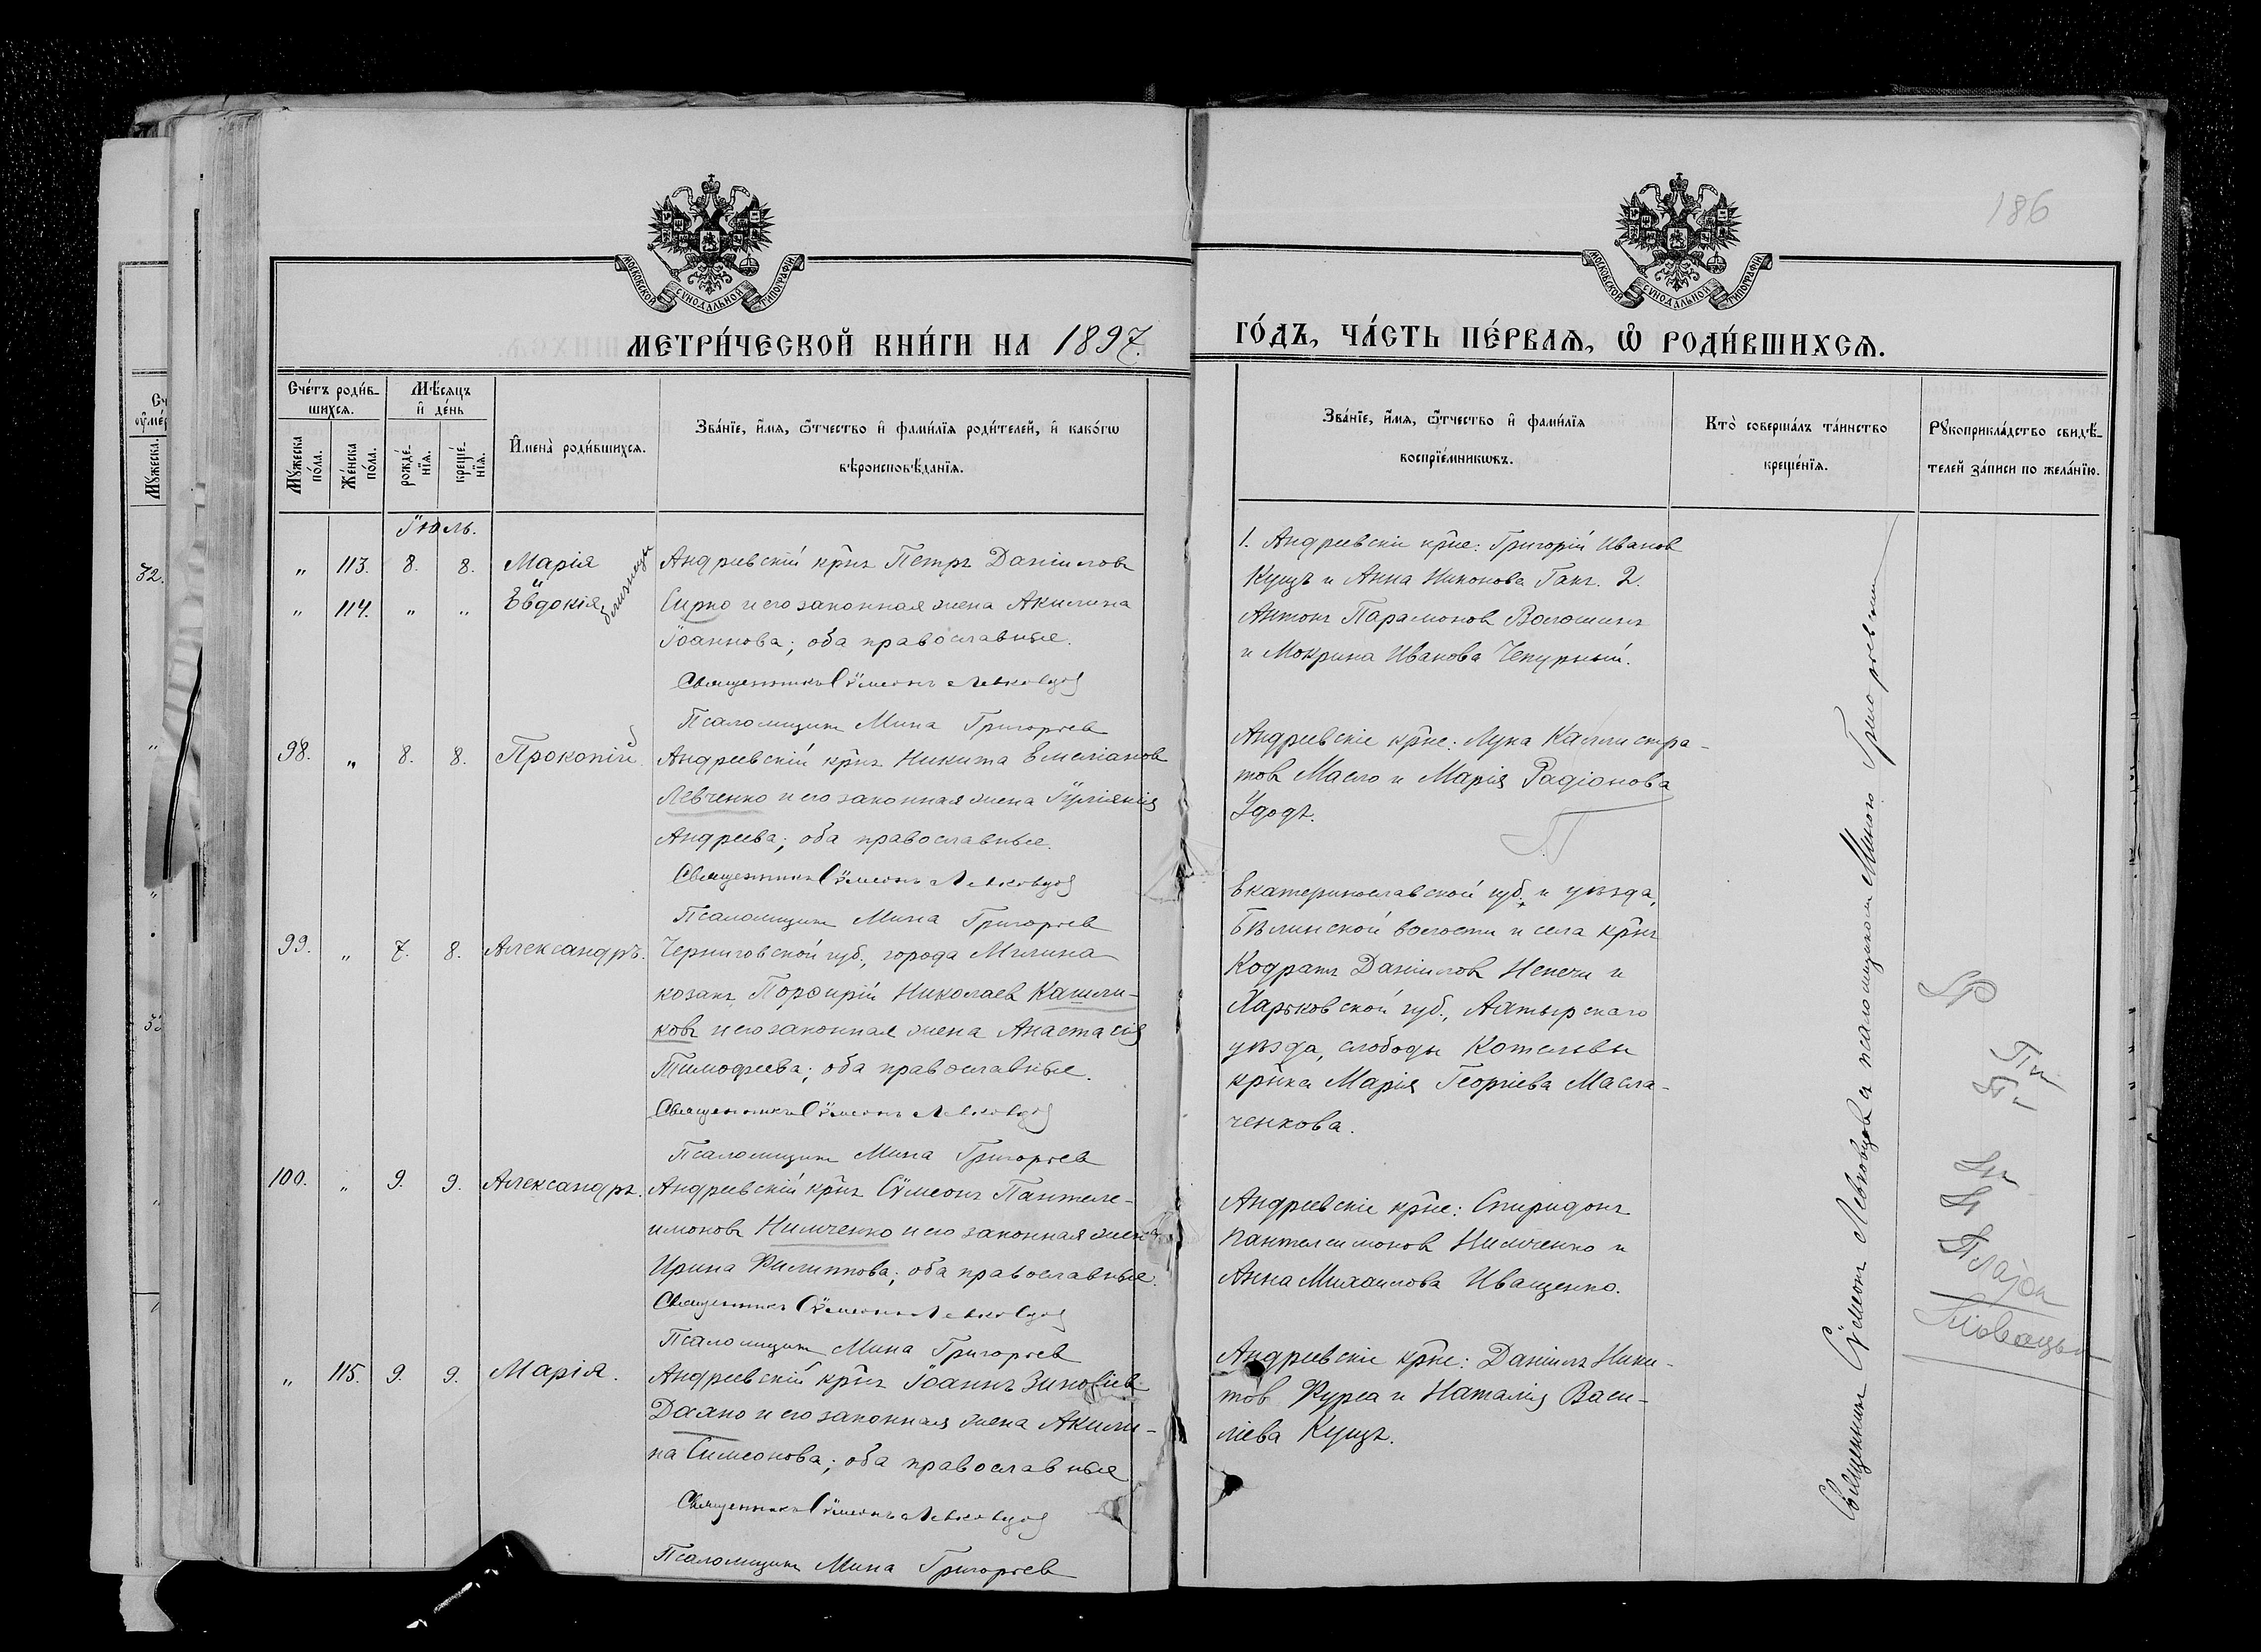 186
МОСКОВСКОЙ СѴНОДАЛЬНОЙ ТИПОГРАФІИ
МОСКОВСКОЙ СѴНОДАЛЬНОЙ ТИПОГРАФІИ
МЕТРИ́ЧЕСКОЙ КНИ́ГИ НА 1897.
ГО́ДЪ, ЧА́СТЬ ПЕ́РВАѦ, Ѡ҆ РОДИ́ВШИХСѦ.
Сче́тъ роди́в-
шихся.
Мꙋ́жеска по́ла.
Же́нска по́ла.
Мѣ́сяцъ
и҆ де́нь
рожде́-нїя.
креще́-нїя.
И҆мена̀ роди́вшихся.
Зва́нїе, и҆́мя, ѻ҆́тчество и҆ фами́лїя роди́телей, и҆ како́гѡ
вѣроисповѣ́данїя.
Зва́нїе, и҆́мя, ѻ҆́тчество и҆ фами́лїя
воспрїе́мникѡвъ.
Кто̀ соверша́лъ та́инство
креще́нїя.
Рꙋкоприкла́дство свидѣ́-
телей за́писи по жела́нїю.
Іюль.
„ 113. 8. 8. Марія
„ 114. „ „ Евдокія близнецы
Андреевскій кр̃нъ Петръ Даніиловъ
Сирко и его законная жена Акилина
Іоаннова; оба православные.
Священникъ Сѵмеонъ Левковцов
Псаломщикъ Мина Григорьев
1. Андреевскіе кр̃не: Григорій Иванов
Кущъ и Анна Никонова Ганг. 2.
Антонъ Парамонов Волошинъ
и Мокрина Иванова Чепурный.
98. „ 8. 8. Прокопій.
Андреевскій кр̃нъ Никита Емеліанов
Левченко и его законная жена Іуліанія
Андреева; оба православные.
Священникъ Сѵмеонъ Левковцов
Псаломщикъ Мина Григорьев
Андреевскіе кр̃не: Лука Каллистра-
тов Масло и Марія Радіонова
Удодъ.
99. „ 7. 8. Александръ.
Черниговской губ., города Мглина
козакъ Порфирій Николаев Кашли-
ковъ и его законная жена Анастасія
Тимофеева; оба православные.
Священникъ Сѵмеонъ Левковцов
Псаломщикъ Мина Григорьев
Екатеринославской губ. и уѣзда,
Бѣлинской волости и села кр̃нъ
Кодратъ Даніилов Непечи и
Харьковской губ., Ахтырскаго
уѣзда, слободы Котельвы
кр̃нка Марія Георгіева Масла-
ченкова.
100. „ 9. 9. Александръ.
Андреевскій кр̃нъ Сѵмеонъ Пантеле-
имоновъ Нимченко и его законная жена
Ирина Филиппова; оба православные.
Священникъ Сѵмеонъ Левковцов
Псаломщикъ Мина Григорьев
Андреевскіе кр̃не: Спиридонъ
Пантелеимонов Нимченко и
Анна Михаилова Иващенко.
„ 115. 9. 9. Марія.
Андреевскій кр̃нъ Іоаннъ Зиновіев
Дахно и его законная жена Акили-
на Симеонова; оба православные
Священникъ Сѵмеонъ Левковцов
Псаломщикъ Мина Григорьев
Андреевскіе кр̃не: Даніилъ Ники-
тов Фурса и Наталія Васи-
ліева Кущъ.
Священникъ Сѵмеонъ Левковцовъ и псаломщикомъ Миною Григорьевымъ